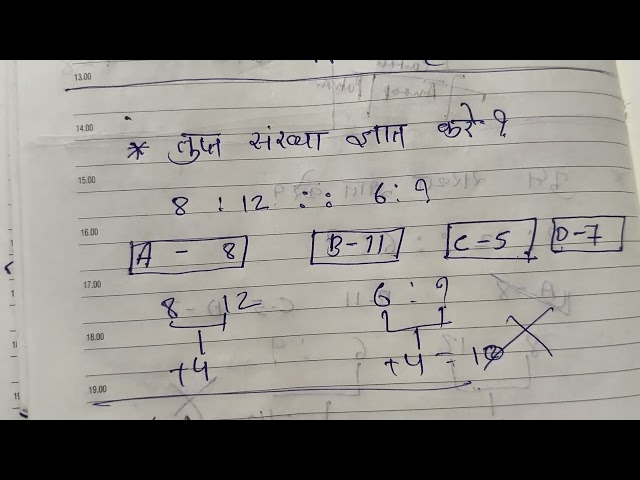 13.00
14.00
* लुप्त संख्या ज्ञात करे ?
15.00
8 : 12 :: 6 : ?
16.00
A - 8 B-11 C-5 D-7
17.00
8 12 6 : ?
18.00
+4 +4 = 10
19.00